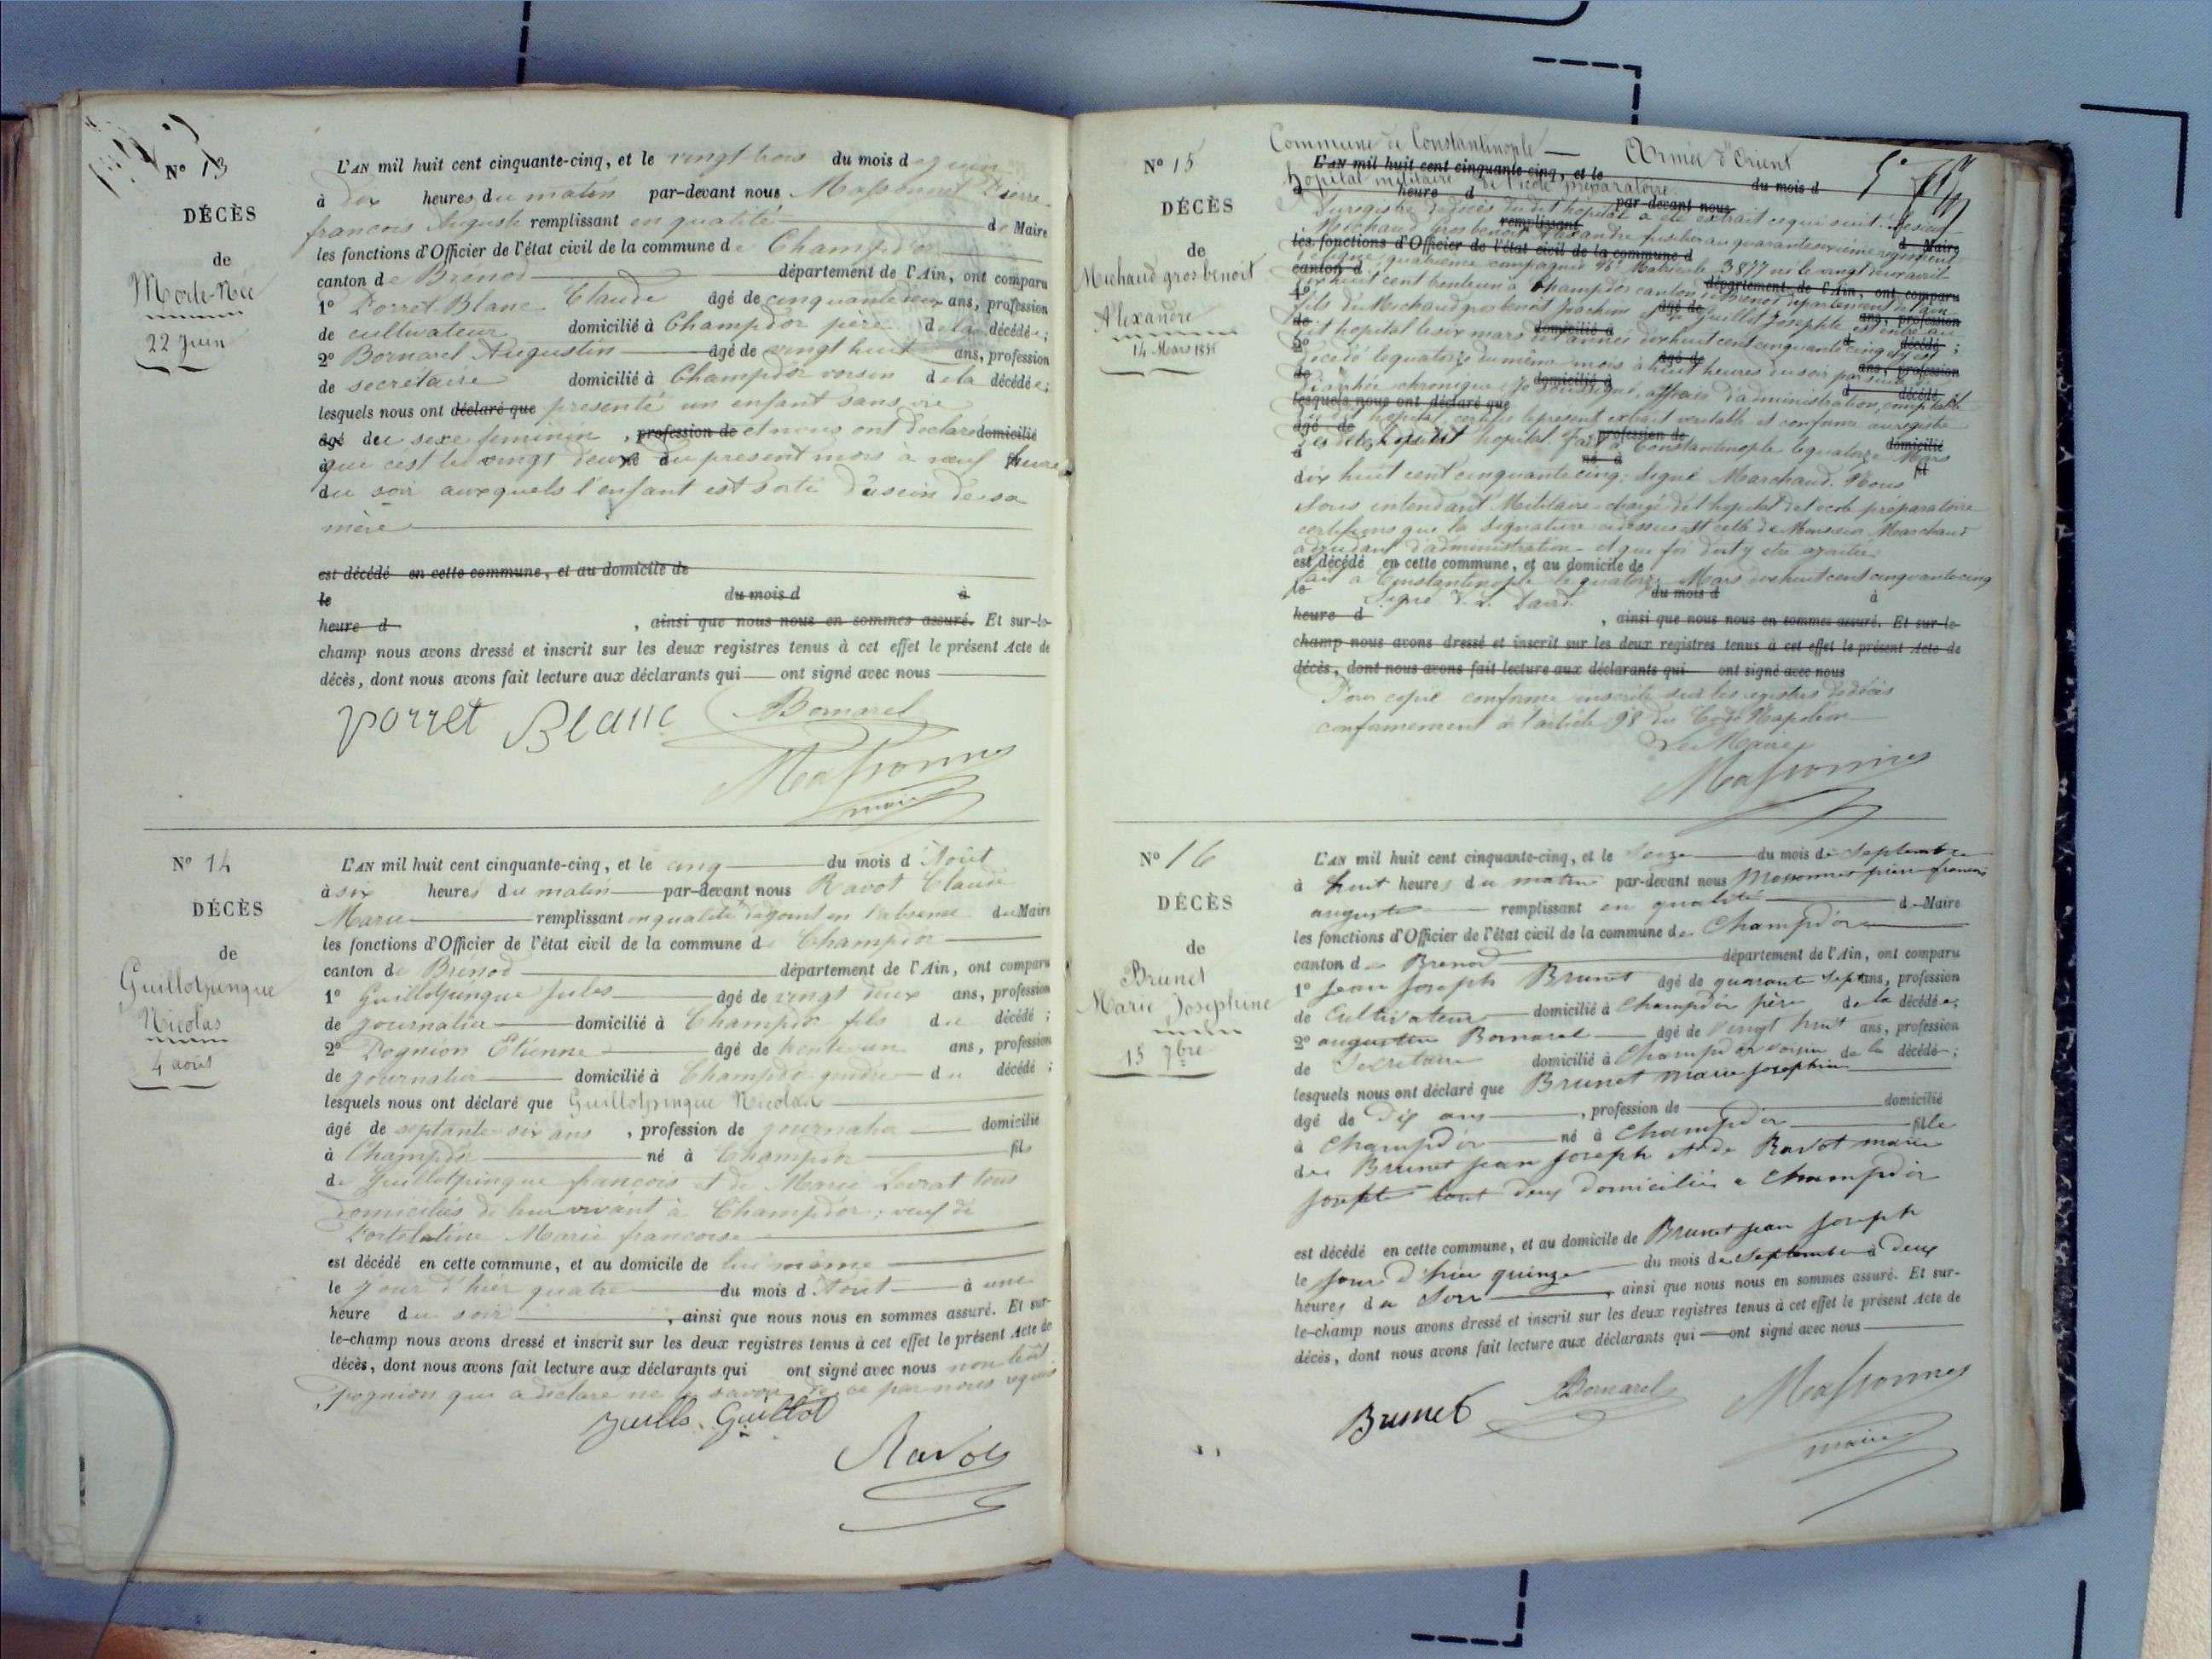 N° 13
DÉCÈS
de
Morte-Née
22 Juin
L'AN mil huit cent cinquante-cinq, et le vingt trois du mois de juin
à dix heures du matin par-devant nous Massonnet Pierre
francois Auguste remplissant en qualité de Maire
les fonctions d'Officier de l'état civil de la commune de Champdor
canton de Brenod département de l'Ain, ont comparu
1° Porret Blanc Claude âgé de cinquante deux ans, profession
de cultivateur domicilié à Champdor père de la décédée;
2° Bornarel Augustin âgé de vingt huit ans, profession
de secrétaire domicilié à Champdor voisin de la décédée;
lesquels nous ont déclaré que présenté un enfant sans vie
âgé du sexe feminin, profession de et nous ont déclaré domicilié
que c'est le vingt deux du present mois à neuf heures
du soir auxquels l'enfant est sorti du sein de sa
mère
est décédé en cette commune, et au domicile de
le du mois d à
heure d , ainsi que nous nous en sommes assuré. Et sur-le-
champ nous avons dressé et inscrit sur les deux registres tenus à cet effet le présent Acte de
décès, dont nous avons fait lecture aux déclarants qui ont signé avec nous
porret Blanc Bornarel
Massonnet
maire
N° 14
DÉCÈS
de
Guillotpingue
Nicolas
4 août
L'AN mil huit cent cinquante-cinq, et le cinq du mois d'Août
à six heures du matin par-devant nous Ravot Claude
Marie remplissant en qualité d'adjoint en l'absence du Maire
les fonctions d'Officier de l'état civil de la commune de Champdor
canton de Brénod département de l'Ain, ont comparu
1° Guillotpingue Jules âgé de vingt deux ans, profession
de journalier domicilié à Champdor fils du décédé;
2° Pognion Etienne âgé de trente un ans, profession
de journalier domicilié à Champdor gendre du décédé;
lesquels nous ont déclaré que Guillotpingue Nicolas
âgé de septante six ans, profession de journalier domicilié
à Champdor né à Champdor fils
de Guillotpingue françois et de Marie Lovrat tous
domiciliés de leur vivant à Champdor; veuf de
Marie francoise
est décédé en cette commune, et au domicile de lui même
le jour d'hier quatre du mois d'Août à une
heure du soir, ainsi que nous nous en sommes assuré. Et sur-
le-champ nous avons dressé et inscrit sur les deux registres tenus à cet effet le présent Acte de
décès, dont nous avons fait lecture aux déclarants qui ont signé avec nous non ledit
pognion qui a déclaré ne le savoir de ce par nous requis
Guillot
Ravot
N° 15
DÉCÈS
de
Michaud grosbenoit
Alexandre
14 Mars 1855
Commune de Constantinople — Armée d'Orient
L'AN mil huit cent cinquante-cinq, et le du mois d
hopital militaire de l'école préparatoire
heure d par-devant nous
Du registre de décès dudit hôpital a été extrait ce qui suit. Le sieur
remplissant
Michaud grosbenoit Alexandre fusilier au quarante sixième regiment
les fonctions d'Officier de l'état civil de la commune d d Maire
de ligne quatrième compagnie Matricule 3877 né le vingt deux avril
canton d département de l'Ain, ont comparu
dix huit cent trente un à Champdor canton de Brenod departement de l'ain
1° âgé de ans, profession
fils de Michaud grosbenoit Joachim et de Guillot Josephte est entré au
de domicilié à d décédé;
dit hopital le six mars de l'année dix huit cent cinquante cinq et y est
2° âgé de ans, profession
décédé le quatorze du même mois à huit heures du soir par suite de
de domicilié à d décédé;
diarrhée chronique. Je soussigné, officier d'administration comptable
lesquels nous ont déclaré que
dudit hopital certifie le present extrait veritable et conforme au registre
âgé de profession de domicilié
hopital. fait à Constantinople le quatorze Mars
à né à fil
dix huit cent cinquante cinq. Signé Marchand. Nous
Sous intendant Militaire chargé de l'hopital de l'ecole préparatoire
certifions que la signature ci dessus est celle de Monsieur Marchand
adjudant d'administration et que foi doit y etre ajoutée.
est décédé en cette commune, et au domicile de
fait à Constantinople le quatorze Mars dix huit cent cinquante cinq
le du mois d à
Signé
heure d , ainsi que nous nous en sommes assuré. Et sur-le-
champ nous avons dressé et inscrit sur les deux registres tenus à cet effet le présent Acte de
décès, dont nous avons fait lecture aux déclarants qui ont signé avec nous
Pour copie conforme inscrite sur les registres de décès
conformement à l'article 98 du Code Napoléon
Le Maire
Massonnet
N° 16
DÉCÈS
de
Brunet
Marie Josephine
15 7bre
L'AN mil huit cent cinquante-cinq, et le seize du mois de Septembre
à huit heures du matin par-devant nous Massonnet pierre francois
auguste remplissant en qualité de Maire
les fonctions d'Officier de l'état civil de la commune de Champdor
canton de Brenod département de l'Ain, ont comparu
1° Jean Joseph Brunet âgé de quarante sept ans, profession
de Cultivateur domicilié à Champdor père de la décédée;
2° augustin Bornarel âgé de vingt huit ans, profession
de Secretaire domicilié à Champdor voisin de la décédée;
lesquels nous ont déclaré que Brunet marie josephine
âgé de dix ans, profession de domicilié
à Champdor né à Champdor fille
de Brunet jean joseph et de Ravot marie
josephte tout deux domiciliés a Champdor
est décédé en cette commune, et au domicile de Brunet jean joseph
le jour d'hier quinze du mois de septembre à deux
heures du soir, ainsi que nous nous en sommes assuré. Et sur-
le-champ nous avons dressé et inscrit sur les deux registres tenus à cet effet le présent Acte de
décès, dont nous avons fait lecture aux déclarants qui ont signé avec nous
Brunet Bornarel Massonnet
maire